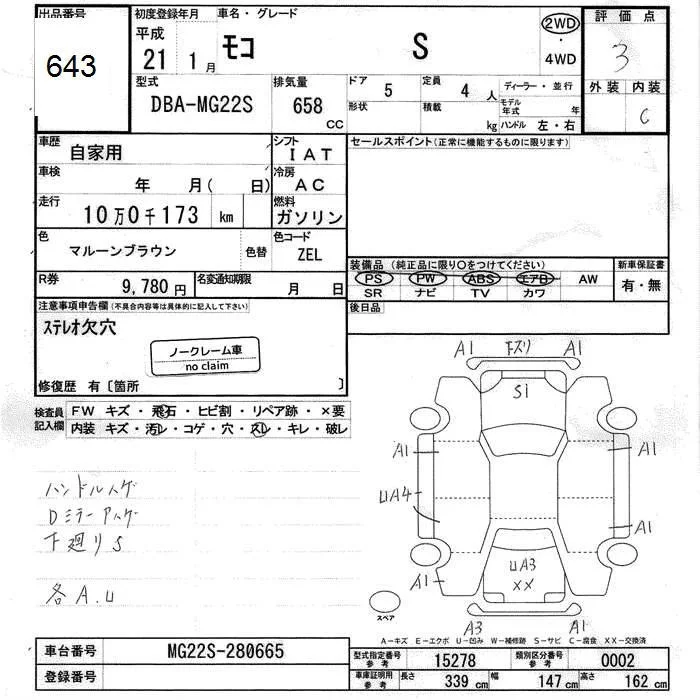 出品番号 初度登録年月 車名・グレード 評価点
643
平成 21 1月 モコ S 2WD・4WD 3
型式 排気量 ドア 5 定員 4人 ディーラー・並行 外装 内装
DBA-MG22S 658 CC 形状 積載 kg モデル年式 年 C
ハンドル 左・右
車歴 自家用 シフト IAT セールスポイント(正常に機能するものに限ります)
車検 年 月( 日) 冷房 AC
走行 10万0千173 km 燃料 ガソリン
色 マルーンブラウン 色替 色コード ZEL
装備品 (純正品に限り○をつけてください) 新車保証書
R券 9,780円 名変通知期限 月 日
PS PW ABS エアB AW 有・無
SR ナビ TV カワ
注意事項申告欄(不具合内容等は具体的に記入して下さい) 後日品
ステレオ欠穴
ノークレーム車
no claim
修復歴 有〔箇所 〕
検査員記入欄 FW キズ・飛石・ヒビ割・リペア跡・×要
内装 キズ・汚レ・コゲ・穴・スレ・キレ・破レ
A1 下ズリ A1
S1
A1 A1
UA4
A1
UA3
××
A1
A3 A1
スペア
ハンドルスゲ
Dミラー
下廻りS
各A.U
A-キズ E-エクボ U-凹み W-補修跡 S-サビ C-腐食 XX-交換済
車台番号 MG22S-280665 型式指定番号 参考 15278 類別区分番号 参考 0002
登録番号 車庫証明用 参考 長さ 339 cm 幅 147 cm 高さ 162 cm